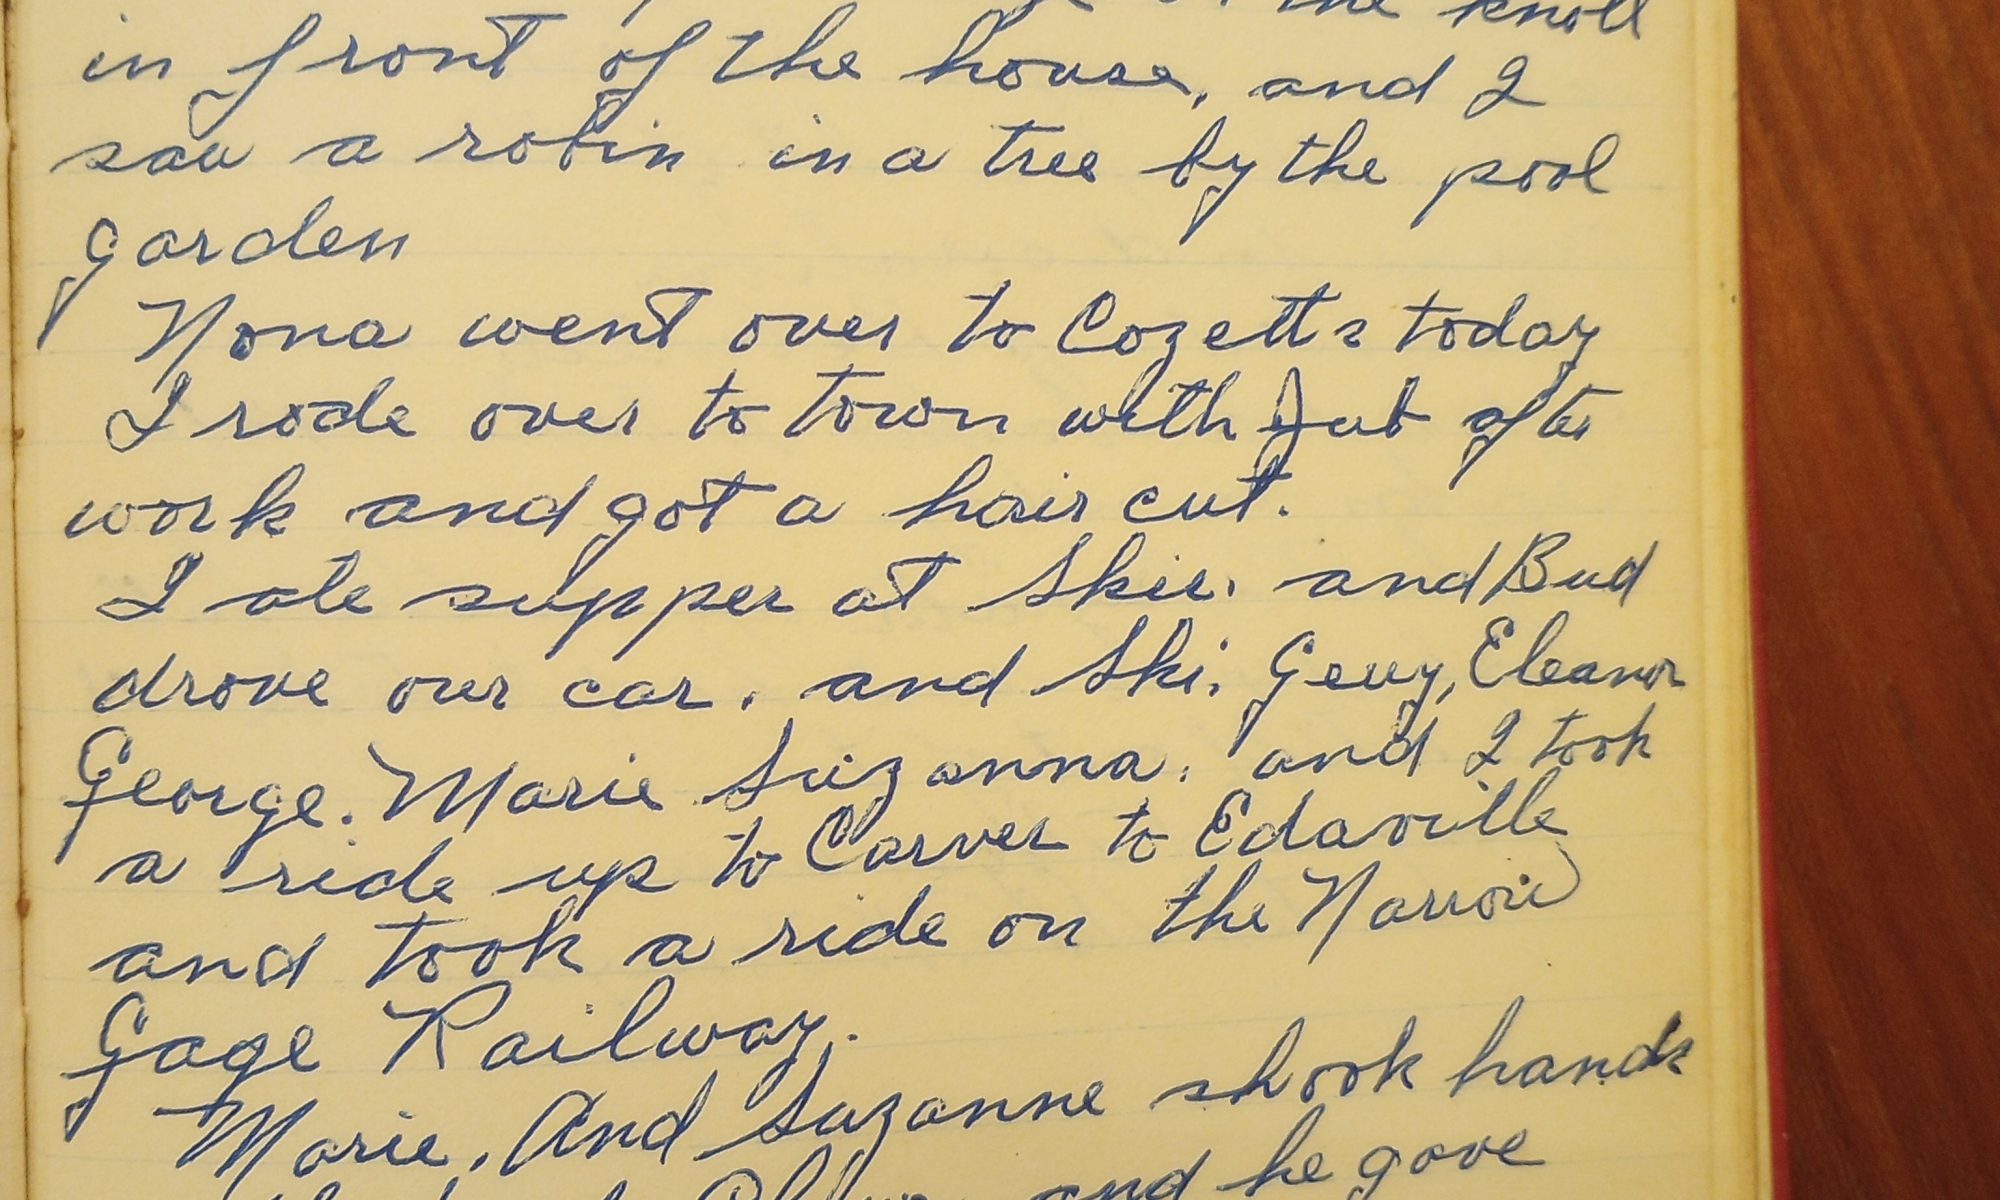 the knoll
in front of the house, and I
saw a robin in a tree by the pool
garden
Nona went over to Cozetts today
I rode over to town with Jub after
work and got a hair cut.
I ate supper at Skis. and Bud
drove our car. and Ski. Gerry, Eleanor
George. Marie Suzanna. and I took
a ride up to Carver to Edaville
and took a ride on the Narrow
Gage Railway.
Marie. And Suzanne shook hands
and he gave